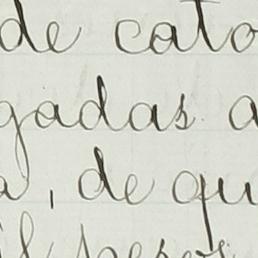 de cato
gadas a
a, de qu